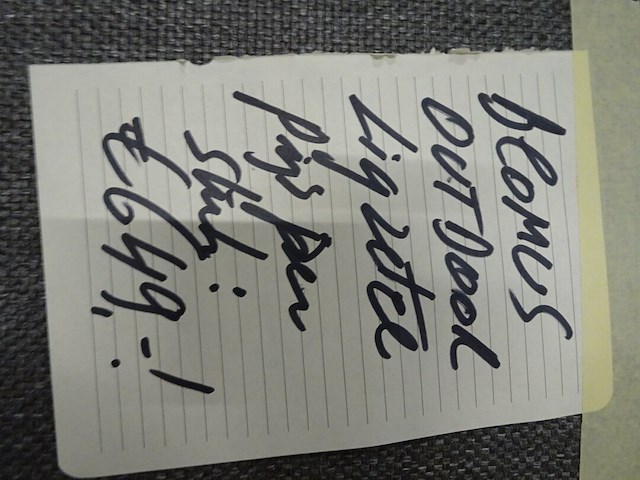 blomus
OUTDOOR
Ligzetel
prijs per
stuk:
€ 649,-!